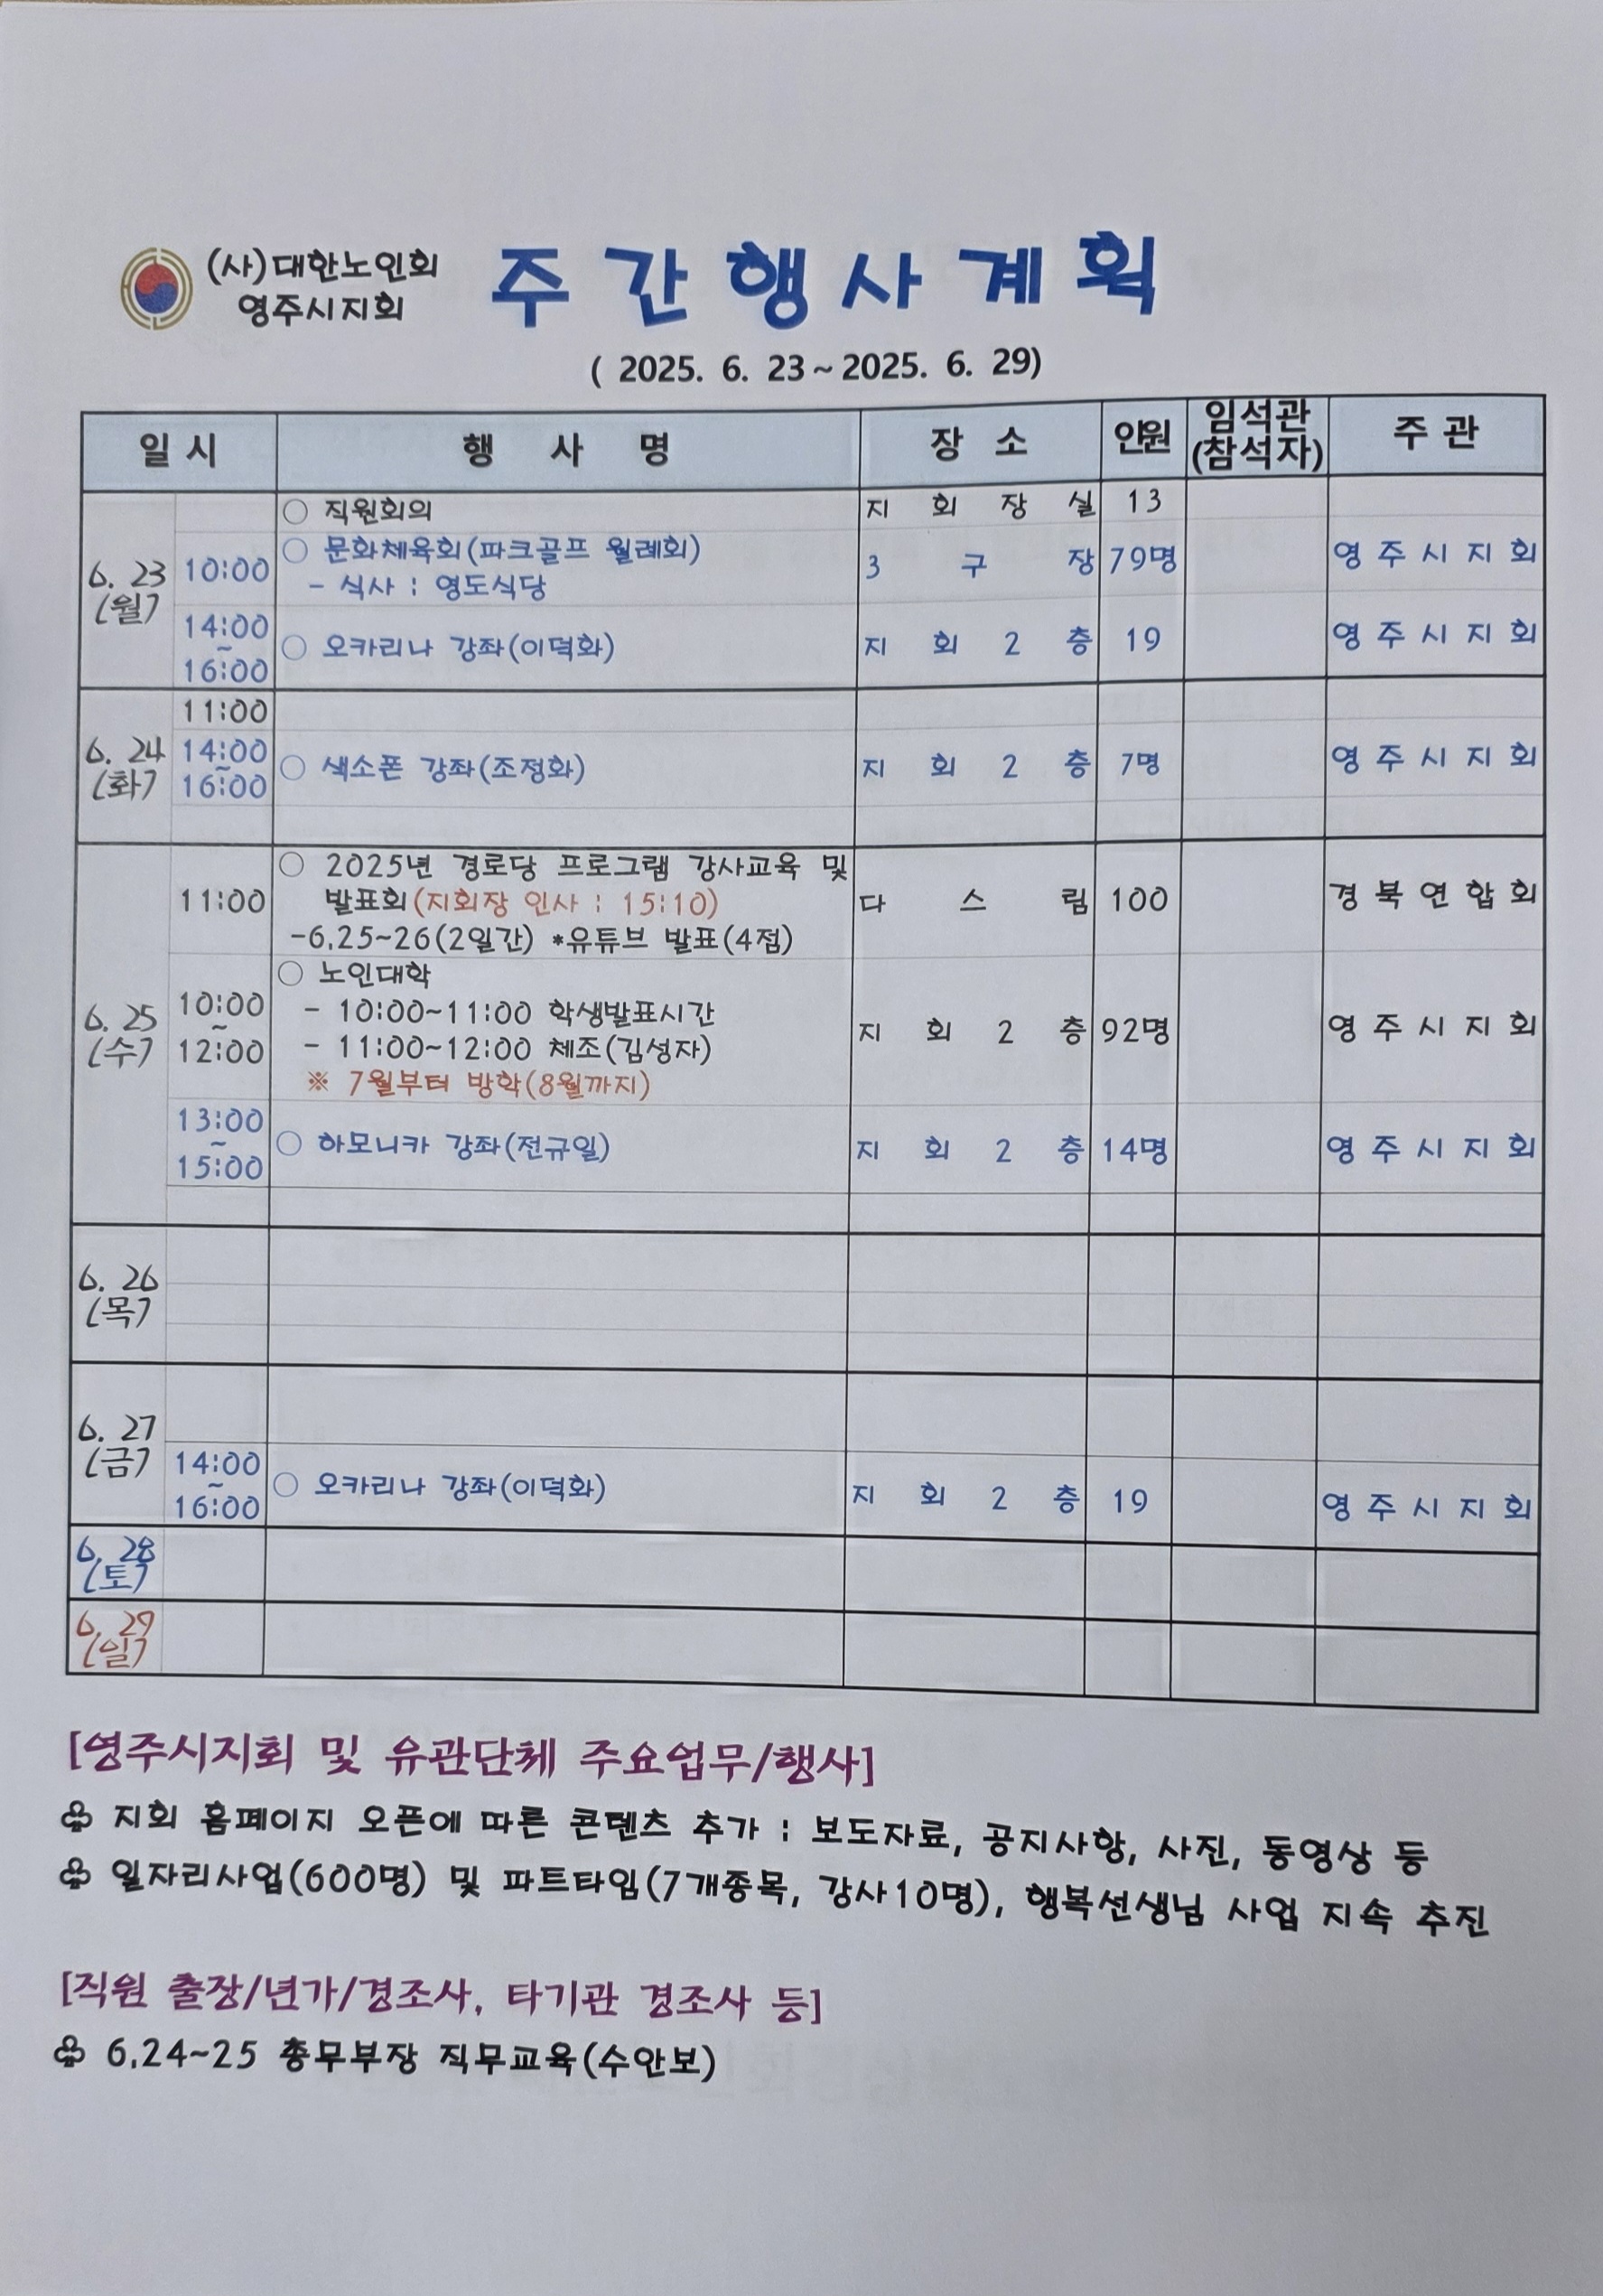 (사)대한노인회
영주시지회
주간행사계획
( 2025. 6. 23~2025. 6. 29)
일시 행사명 장소 인원 임석관(참석자) 주관
6. 23 (월)
○ 직원회의 지회장실 13
10:00 ○ 문화체육회(파크골프 월례회) 3구장 79명 영주시지회
- 식사 : 영도식당
14:00~16:00 ○ 오카리나 강좌(이덕화) 지회2층 19 영주시지회
6. 24 (화)
11:00
14:00~16:00 ○ 색소폰 강좌(조정화) 지회2층 7명 영주시지회
6. 25 (수)
11:00 ○ 2025년 경로당 프로그램 강사교육 및 다스림 100 경북연합회
발표회(지회장 인사 : 15:10)
-6.25~26(2일간) *유튜브 발표(4점)
10:00~12:00 ○ 노인대학 지회2층 92명 영주시지회
- 10:00~11:00 학생발표시간
- 11:00~12:00 체조(김성자)
※ 7월부터 방학(8월까지)
13:00~15:00 ○ 하모니카 강좌(전규일) 지회2층 14명 영주시지회
6. 26 (목)
6. 27 (금)
14:00~16:00 ○ 오카리나 강좌(이덕화) 지회2층 19 영주시지회
6. 28 (토)
6. 29 (일)
[영주시지회 및 유관단체 주요업무/행사]
♧ 지회 홈페이지 오픈에 따른 콘텐츠 추가 : 보도자료, 공지사항, 사진, 동영상 등
♧ 일자리사업(600명) 및 파트타임(7개종목, 강사10명), 행복선생님 사업 지속 추진
[직원 출장/년가/경조사, 타기관 경조사 등]
♧ 6.24~25 총무부장 직무교육(수안보)